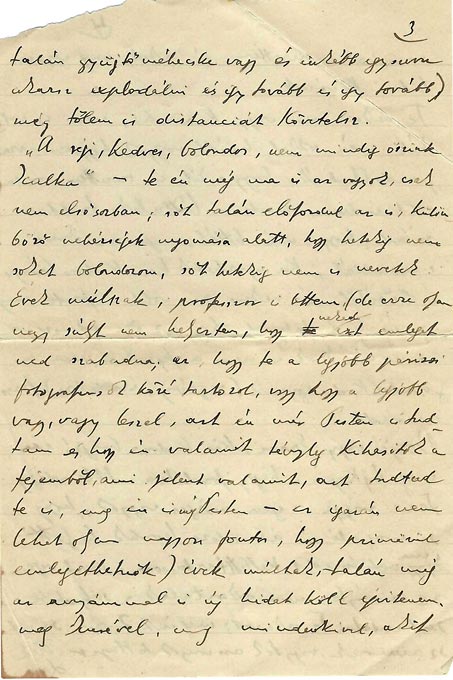 3
talán gyüjtő méhecske vagy és inkább egyszerre
akarsz explodálni és így tovább és így tovább)
még tőlem is distanciát követelsz.
„A régi, kedves, bolondos, nem mindig őszinte
Icalka" – te én még ma is az vagyok, csak
nem elsősorban; sőt talán előfordul az is, külön
böző nehézségek nyomása alatt, hogy hetekig nem
sokat bolondozom, sőt hetekig nem is nevetek
Évek multak, professzor is lettem (de erre olyan
nagy súlyt nem helyeztem, hogy neked ezt emleget
ned szabadna; az, hogy te a legjobb párizsi
fotografusok közé tartozol, vagy hogy a legjobb
vagy, vagy leszel, azt én már Pesten is tud
tam és hogy én valamit tényleg kihasítok a
fejemből, ami jelent valamit, azt tudtad
te is, meg én is még Pesten – ez igazán nem
lehet olyan nagyon fontos, hogy primérül
emlegethetnők) évek multak, talán még
az anyámmal is új hidat köll építenem,
meg Imrével, meg mindenkivel, akit